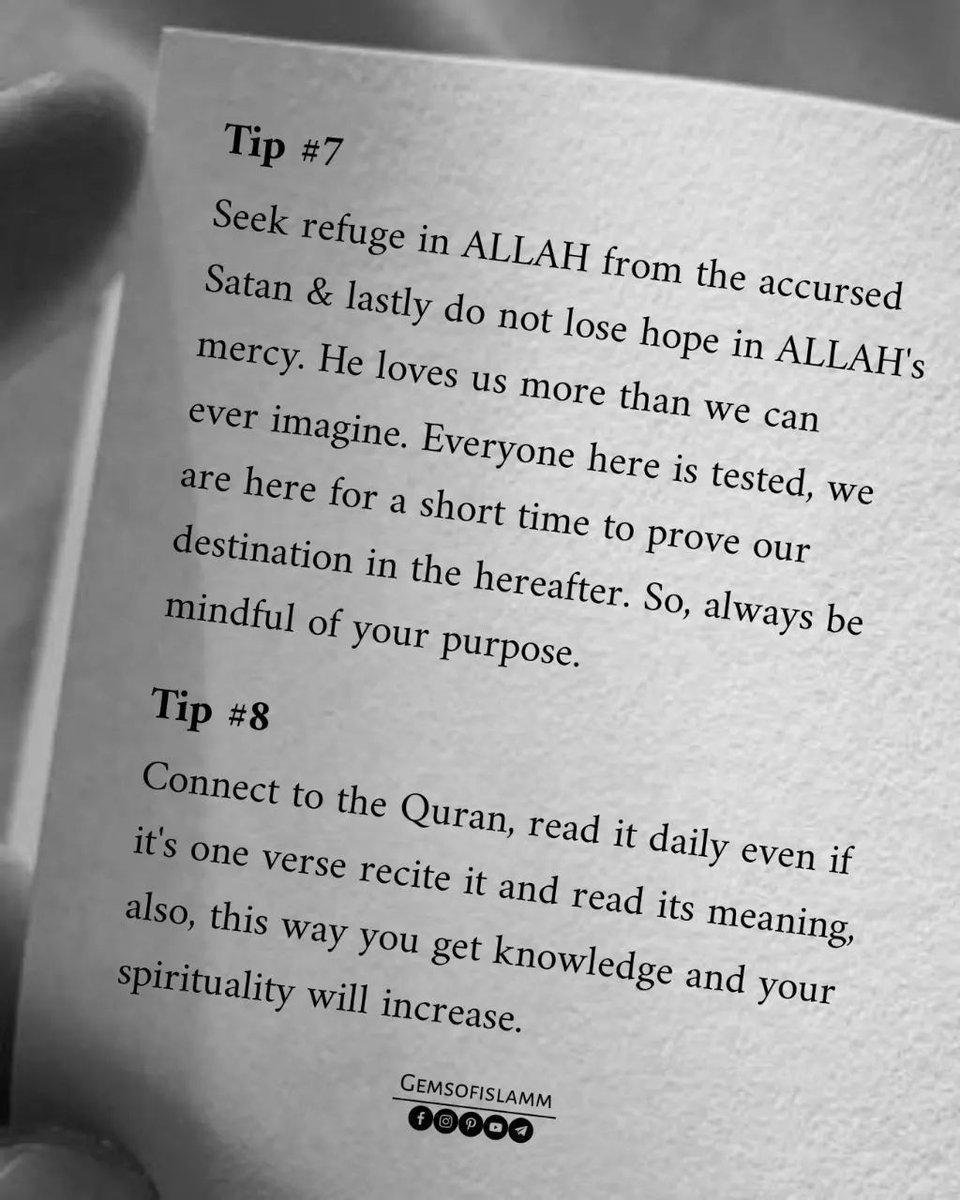 Tip #7
Seek refuge in ALLAH from the accursed
Satan & lastly do not lose hope in ALLAH's
mercy. He loves us more than we can
ever imagine. Everyone here is tested, we
are here for a short time to prove our
destination in the hereafter. So, always be
mindful of your purpose.
Tip #8
Connect to the Quran, read it daily even if
it's one verse recite it and read its meaning,
also, this way you get knowledge and your
spirituality will increase.
GEMSOFISLAMM